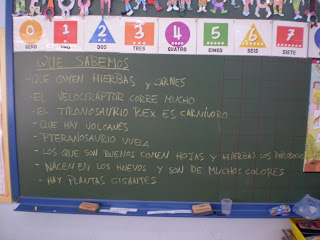 0 1 2 3 4 5 6 7
CERO UNO DOS TRES CUATRO CINCO SEIS SIETE
QUE SABEMOS
-QUE COMEN HIERBAS Y CARNES
-EL VELOCIRAPTOR CORRE MUCHO
-EL TIRONOSAURIO REX ES CARNÍVORO
-QUE HAY VOLCANES
-PTERANOSAURIO VUELA
-LOS QUE SON BUENOS COMEN HOJAS Y HIERBAS LOS
-NACEN EN LOS HUEVOS Y SON DE MUCHOS COLORES
-HAY PLANTAS GIGANTES